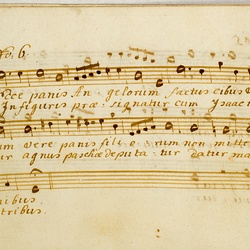 No. 6.
Ecce panis An - gelorum factus cibus
In figuris præ - signatur cum Isaac
um vere panis fili - o - rum non mitte
ur agnus paschæ deputa - tur datur ma
nibus.
tribus.